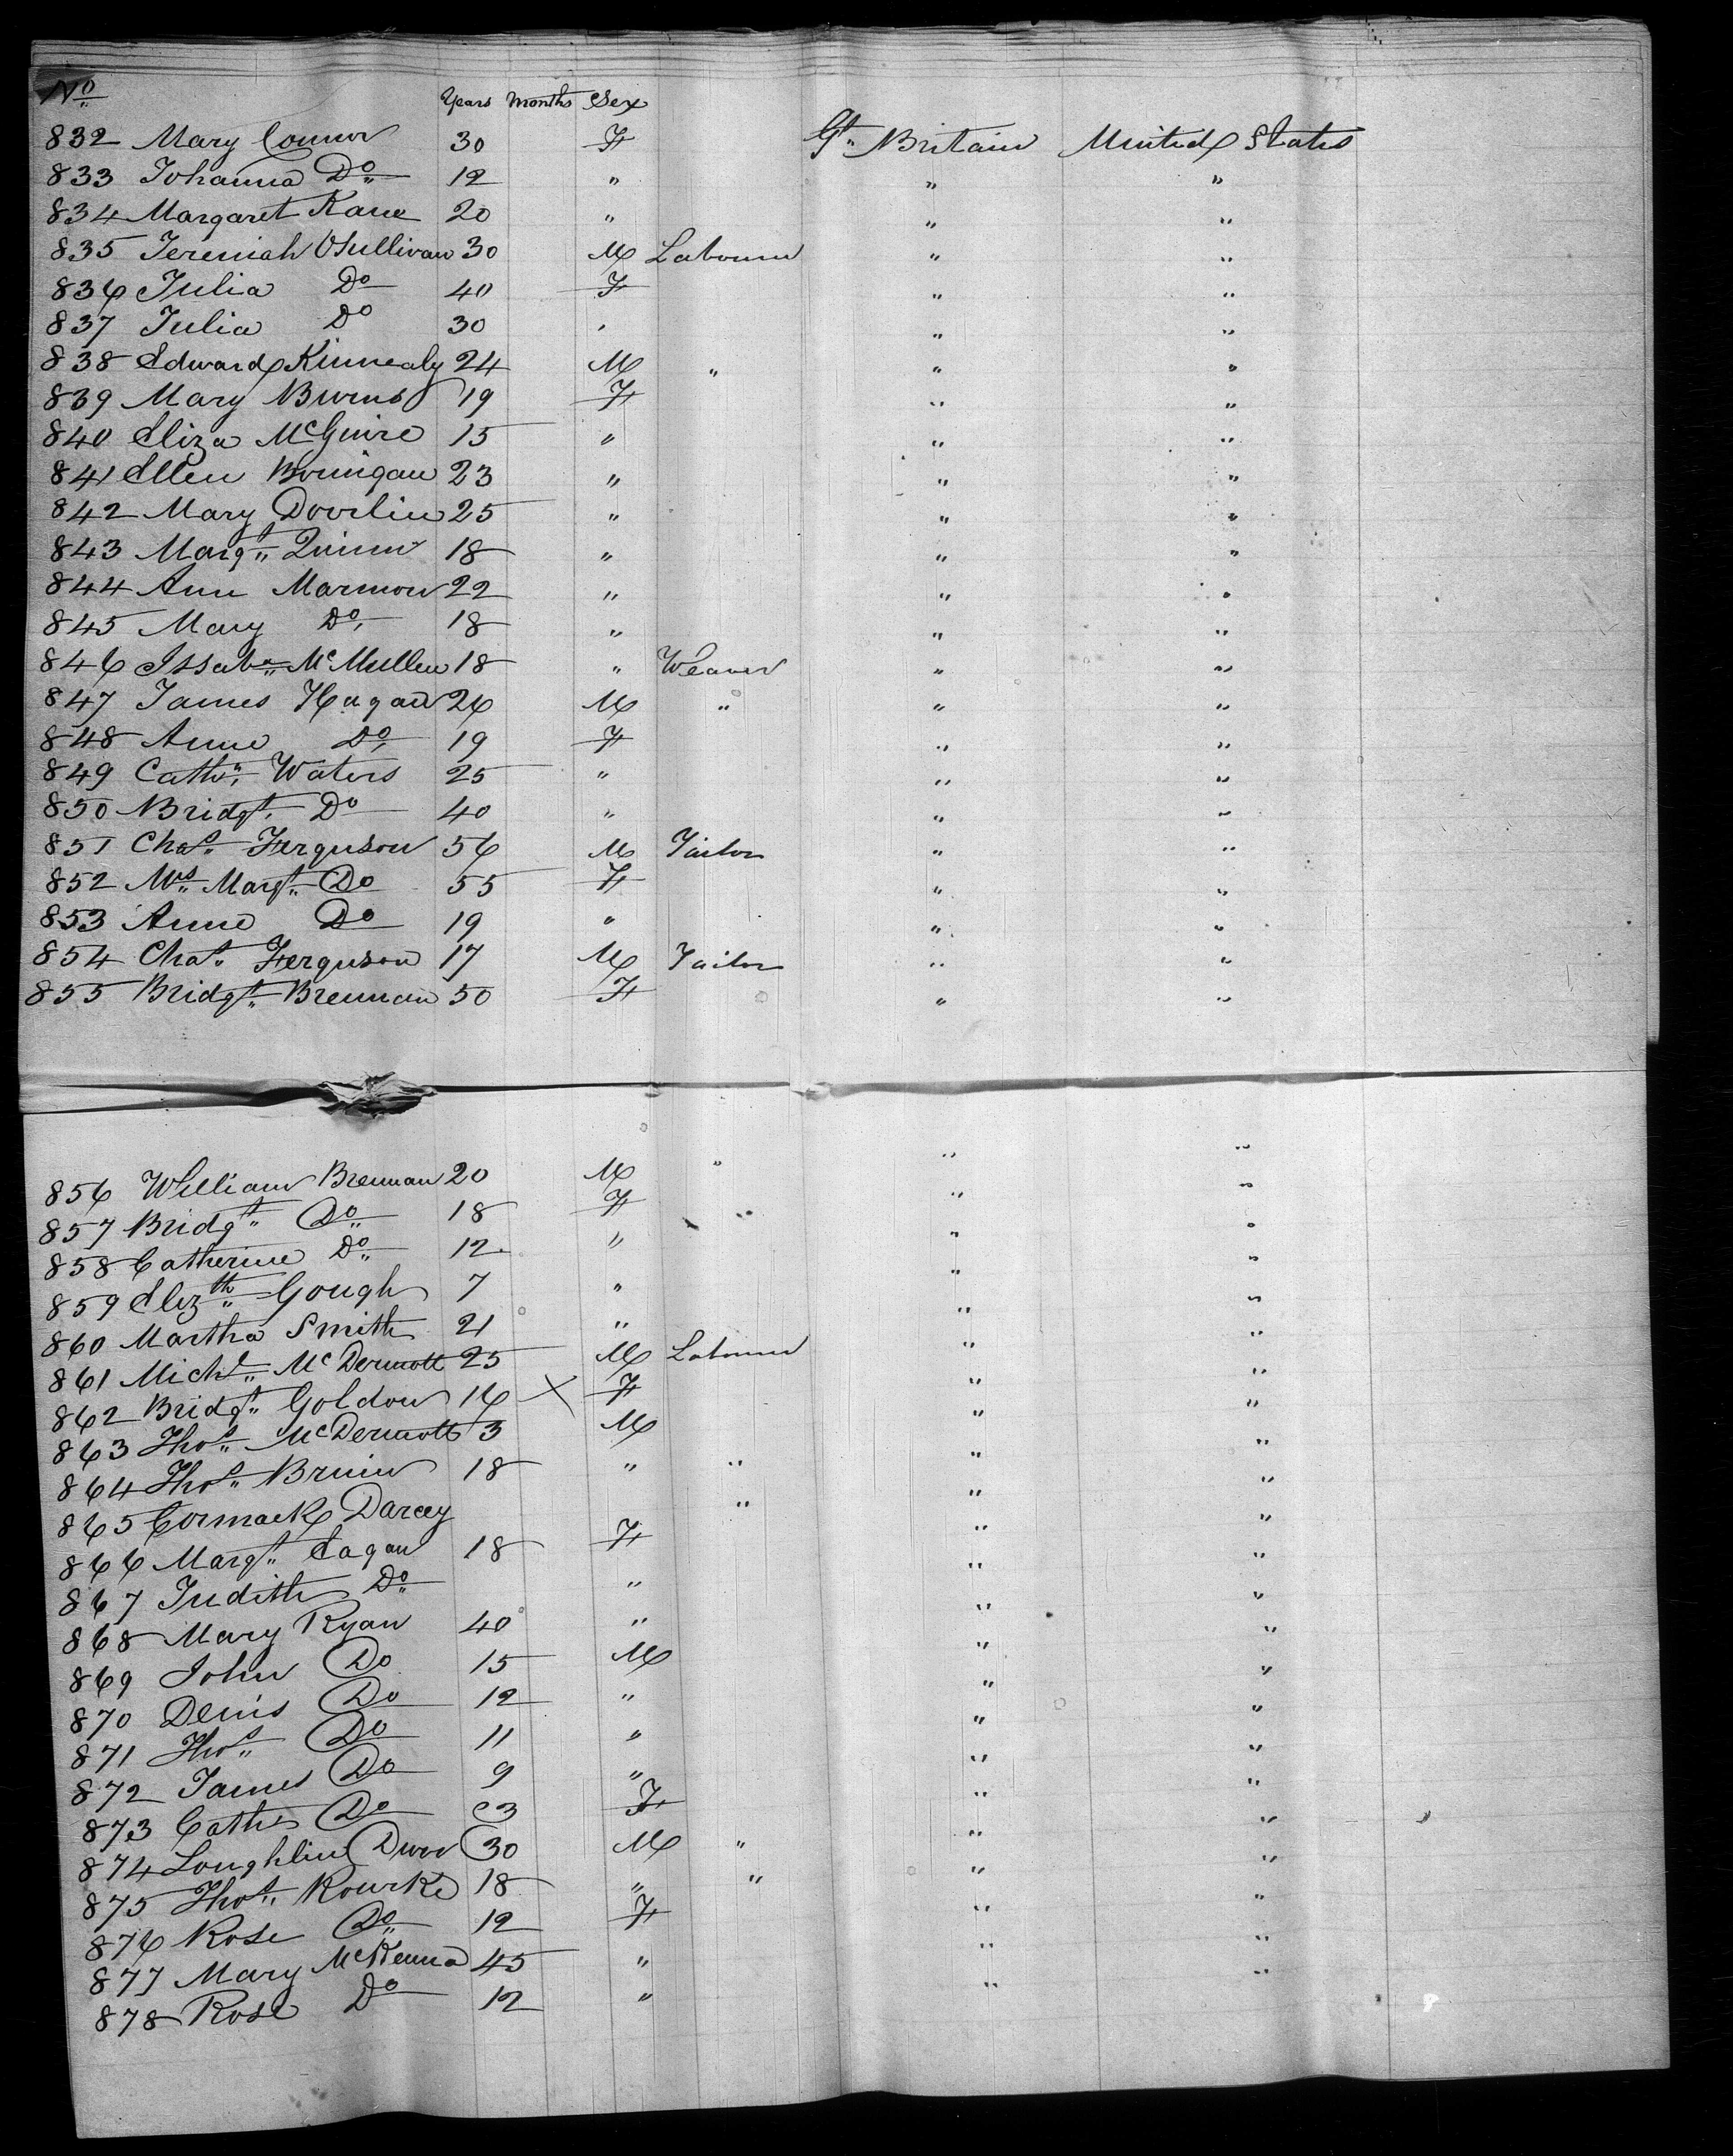 No Years Months Sex
832 Mary Connor 30 F Gt. Britain United States
833 Johanna Do 12 " " "
834 Margaret Kane 20 " " "
835 Jeremiah OSullivan 30 M Labourer " "
836 Julia Do 40 F " "
837 Julia Do 30 " " "
838 Edward Kinnealy 24 M " " "
839 Mary Burns 19 F " "
840 Eliza McGuire 15 " " "
841 Ellen 23 " " "
842 Mary Doorlin 25 " " "
843 Margt Quinn 18 " " "
844 Ann Marmon 22 " " "
845 Mary Do 18 " " "
846 Issaba McMullen 18 " Weaver " "
847 James Hagan 26 M " " "
848 Anne Do 19 F " "
849 Cathn Waters 25 " " "
850 Bridgt Do 40 " " "
851 Chas Ferguson 56 M Tailor " "
852 Mrs Margt Do 55 F " "
853 Anne Do 19 " " "
854 Chas Ferguson 17 M Tailor " "
855 Bridgt Brennan 50 F " "
856 William Brennan 20 M " " "
857 Bridgt Do 18 F " " "
858 Catherine Do 12 " " "
859 Elizth Gough 7 " " "
860 Martha Smith 21 " " "
861 Michl McDermott 25 M Labourer " "
862 Bridgt Goldon 16 X F " "
863 Thos McDermott 3 M " "
864 Thos Bruin 18 " " " "
865 Cormack Darcey " " "
866 Margt Eagan 18 F " "
867 Judith Do " " "
868 Mary Ryan 40 " " "
869 John Do 15 M " "
870 Denis Do 12 " " "
871 Thos Do 11 " " "
872 James Do 9 " " "
873 Cath Do 3 F " "
874 Loughlin 30 M " " "
875 Thos Rourke 18 " " " "
876 Rose Do 12 F " "
877 Mary McKenna 45 " " "
878 Rose Do 12 " " "